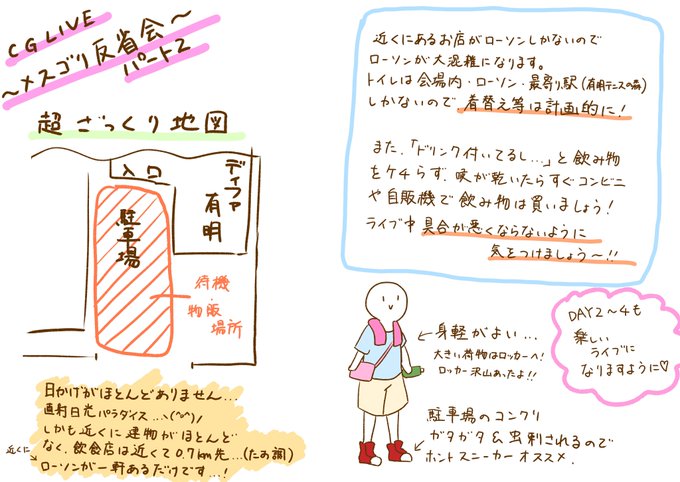 CG LIVE
～メスゴリ反省会～
パート2
超ざっくり地図
入口
ディファ
有明
駐車場
待機
・
物販
場所
日かげがほとんどありません…
直射日光パラダイス…ヽ(^^)ノ
しかも近くに建物がほとんど
なく、飲食店は近くて0.7km先…(たの調)
近くに
ローソンが一軒あるだけです…!
近くにあるお店がローソンしかないので
ローソンが大混雑になります。
トイレは会場内・ローソン・最寄り駅(有明テニスの森)
しかないので着替え等は計画的に!
また、「ドリンク付いてるし…」と飲み物
をケチらず、喉が乾いたらすぐコンビニ
や自販機で飲み物は買いましょう!
ライブ中具合が悪くならないように
気をつけましょう～!!
身軽がよい…
大きい荷物はロッカーへ!
ロッカー沢山あったよ!!
駐車場のコンクリ
ガタガタ&虫刺されるので
ホントスニーカーオススメ.
DAY2～4も
楽しい
ライブに
なりますように♡